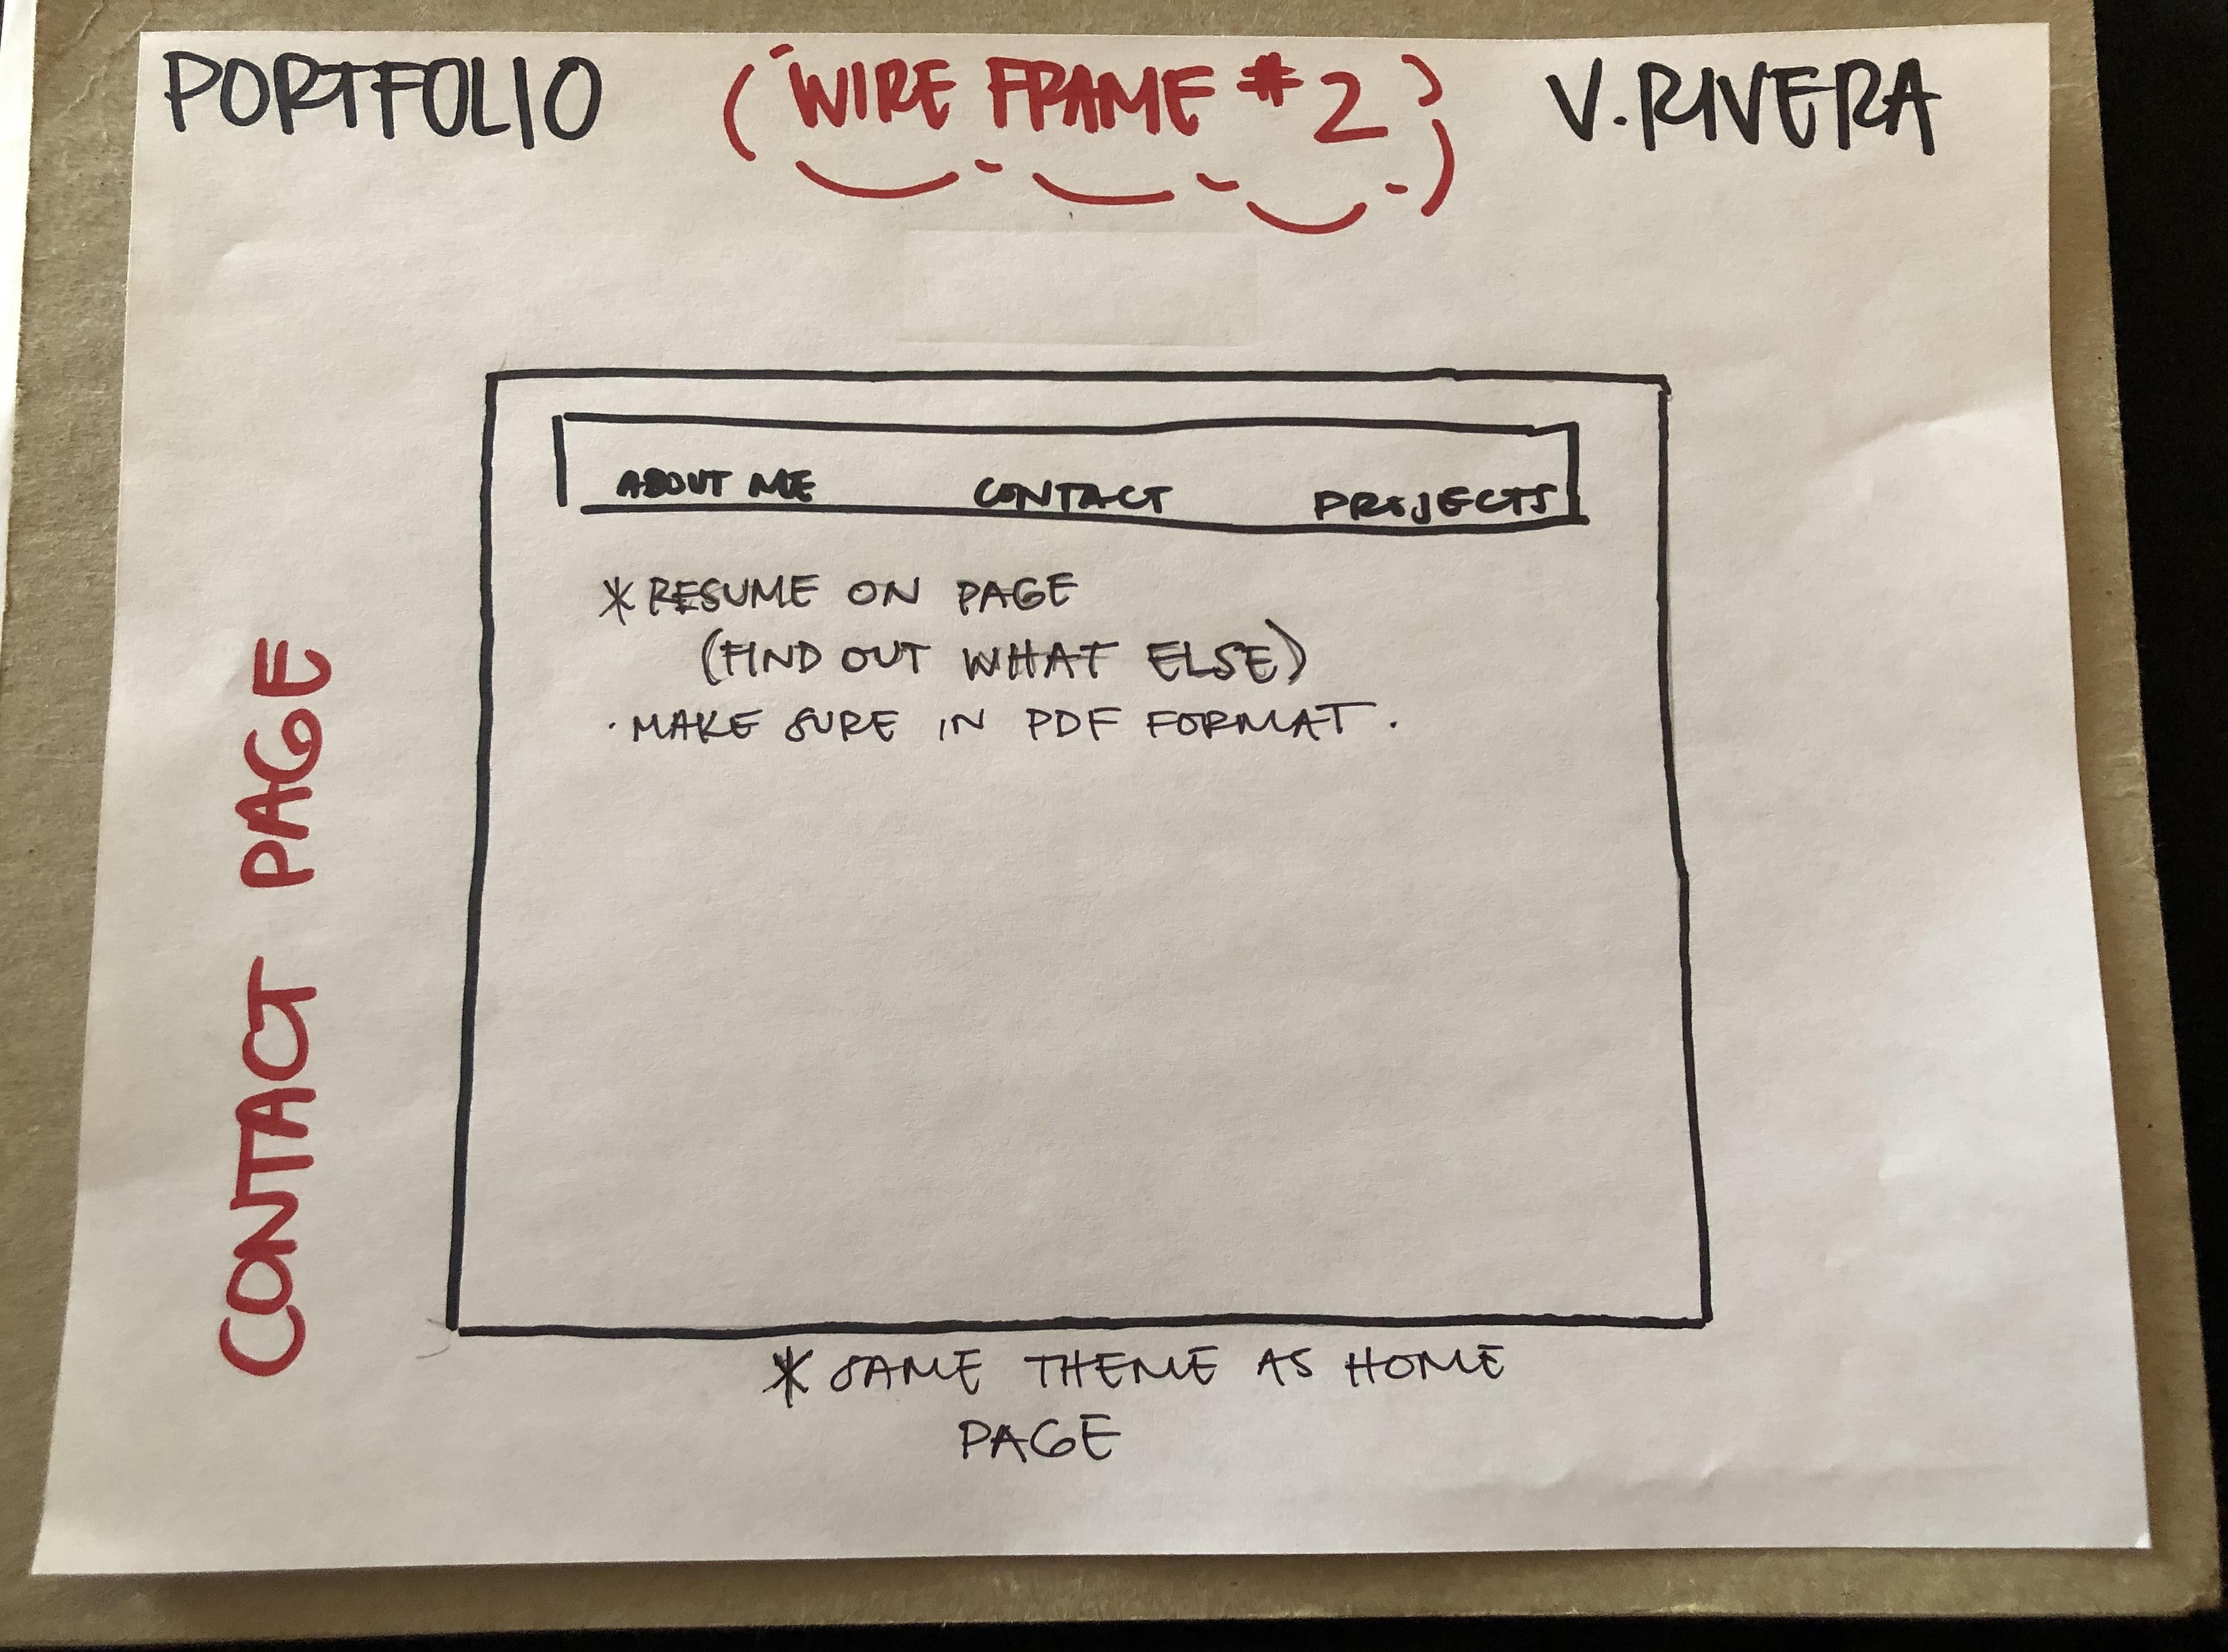 PORTFOLIO (WIRE FRAME #2) V. RIVERA
ABOUT ME CONTACT PROJECTS
* RESUME ON PAGE
(FIND OUT WHAT ELSE)
· MAKE SURE IN PDF FORMAT.
CONTACT PAGE
* SAME THEME AS HOME
PAGE